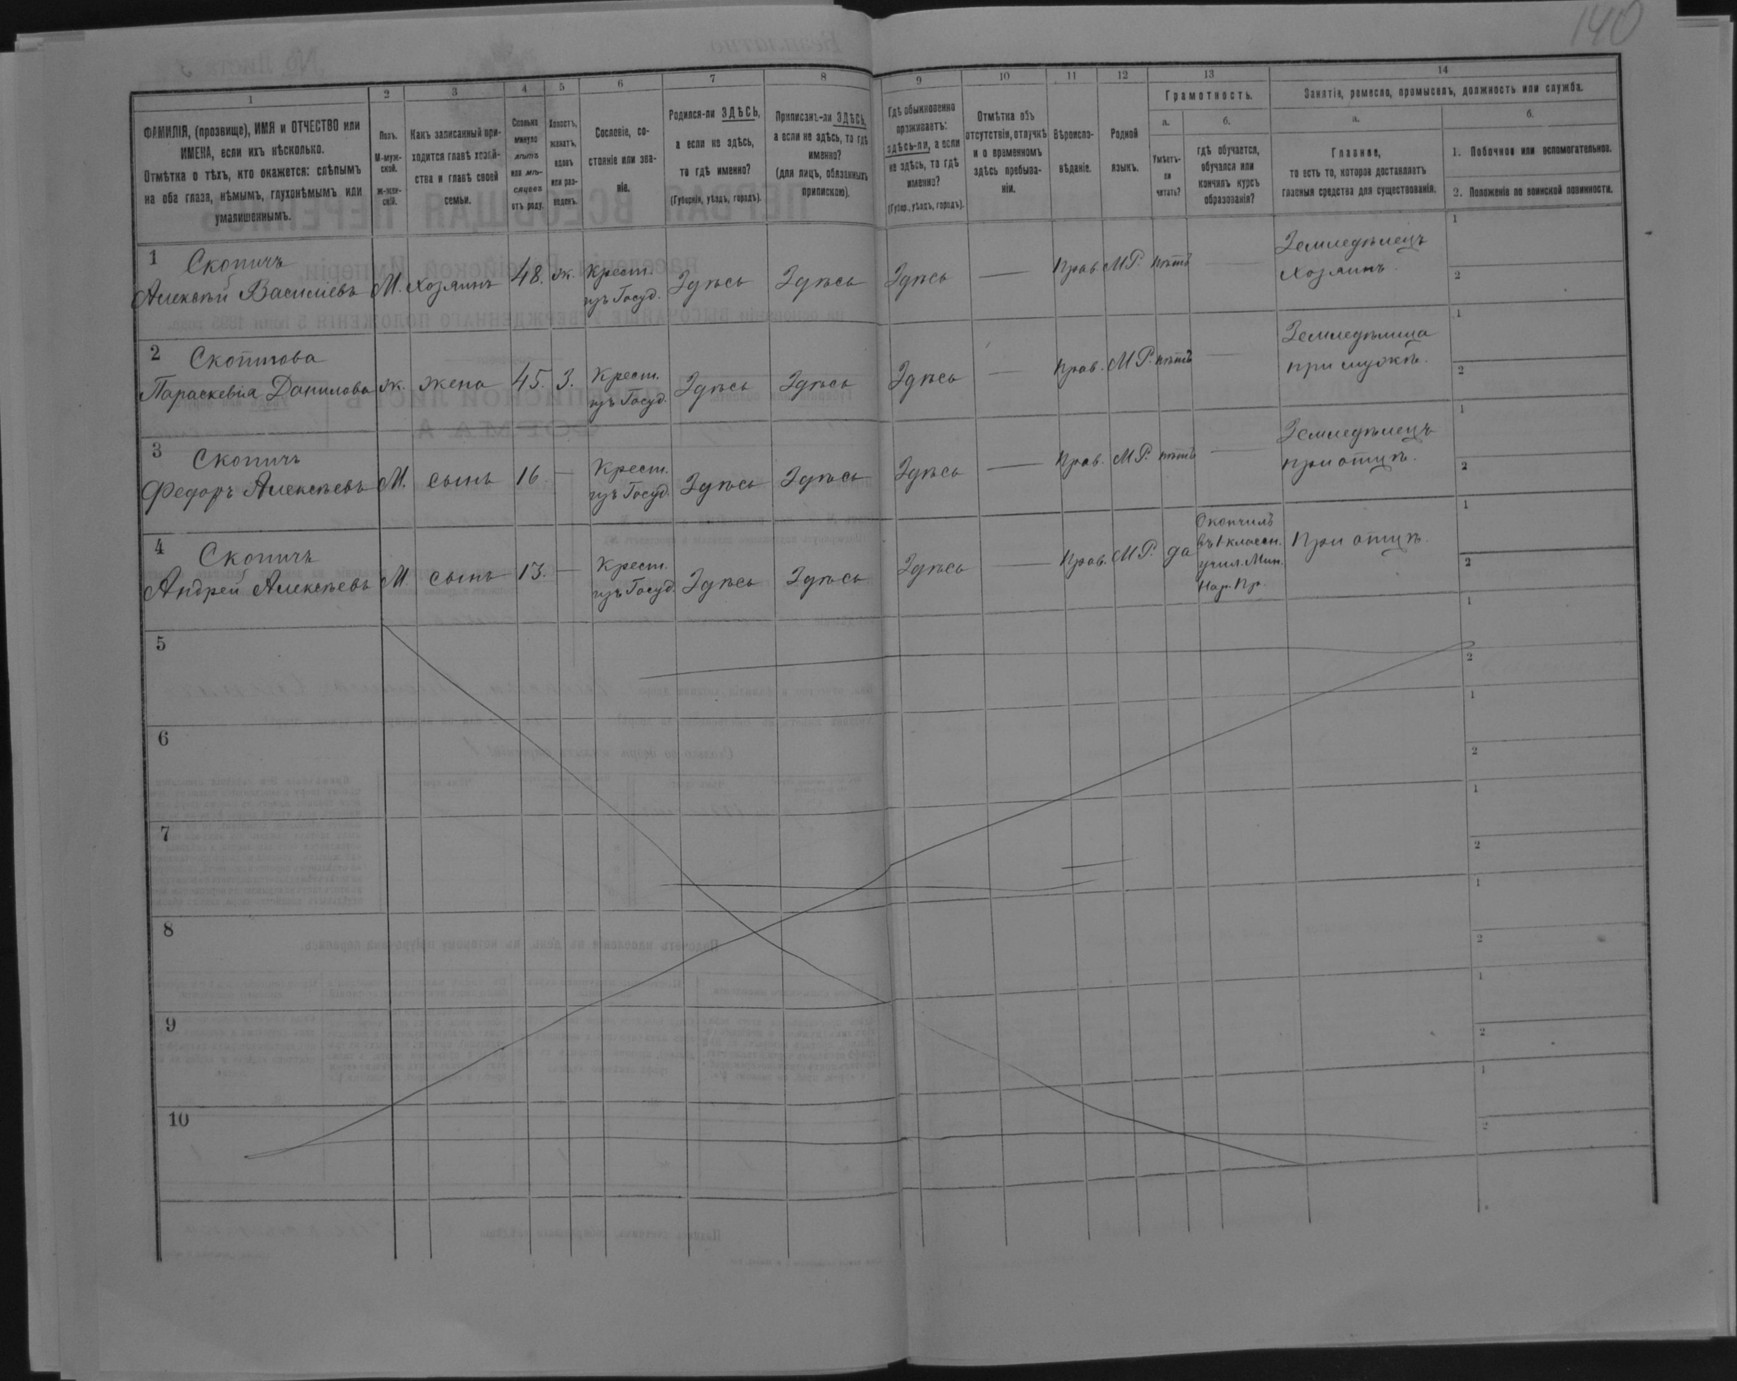 140
1
2
3
4
5
6
7
8
9
10
11
12
13
14
ФАМИЛІЯ, (прозвище), ИМЯ и ОТЧЕСТВО или
ИМЕНА, если ихъ нѣсколько.
Отмѣтка о тѣхъ, кто окажется: слѣпымъ
на оба глаза, нѣмымъ, глухонѣмымъ или
умалишеннымъ.
Полъ.
М-муж-
ской.
Ж-жен-
скій.
Какъ записанный при-
ходится главѣ хозяй-
ства и главѣ своей
семьи.
Сколько
минуло
лѣтъ
или мѣ-
сяцевъ
отъ роду.
Холостъ,
женатъ,
вдовъ
или раз-
веденъ.
Сословіе, со-
стояніе или зва-
ніе.
Родился-ли ЗДѢСЬ,
а если не здѣсь,
то гдѣ именно?
(Губернія, уѣздъ, городъ).
Приписанъ-ли ЗДѢСЬ,
а если не здѣсь, то гдѣ
именно?
(для лицъ, обязанныхъ
припискою).
Гдѣ обыкновенно
проживаетъ:
здѣсь-ли, а если
не здѣсь, то гдѣ
именно?
(Губер., уѣздъ, городъ).
Отмѣтка объ
отсутствіи, отлучкѣ
и о временномъ
здѣсь пребыва-
ніи.
Вѣроиспо-
вѣданіе.
Родной
языкъ.
Грамотность.
а.
Умѣетъ-
ли
читать?
б.
гдѣ обучается,
обучался или
кончилъ курсъ
образованія?
Занятіе, ремесло, промыселъ, должность или служба.
а.
Главное,
то есть то, которое доставляетъ
главныя средства для существованія.
б.
1. Побочное или вспомогательное.
2. Положеніе по воинской повинности.
1
Скопичъ
Алексѣй Васильевъ
М.
хозяинъ
48.
ж.
Крест.
изъ Госуд.
Здѣсь
Здѣсь
Здѣсь
—
Прав.
М.Р.
нѣтъ
—
Земледѣлецъ
хозяинъ.
1
2
2
Параскевія Данилова
ж.
жена
45.
З.
Крест.
изъ Госуд.
Здѣсь
Здѣсь
Здѣсь
—
Прав.
М.Р.
нѣтъ
—
при мужѣ.
1
2
3
Скопичъ
Федоръ Алексѣевъ
М.
сынъ
16
—
Крест.
изъ Госуд.
Здѣсь
Здѣсь
Здѣсь
—
Прав.
М.Р.
нѣтъ
—
Земледѣлецъ
при отцѣ.
1
2
4
Скопичъ
Андрей Алексѣевъ
М.
сынъ
13.
—
Крест.
изъ Госуд.
Здѣсь
Здѣсь
Здѣсь
—
Прав.
М.Р.
да
Окончилъ
въ 1 классн.
учил. Мин.
Нар. Пр.
При отцѣ.
1
2
5
1
2
6
1
2
7
1
2
8
1
2
9
1
2
10
1
2